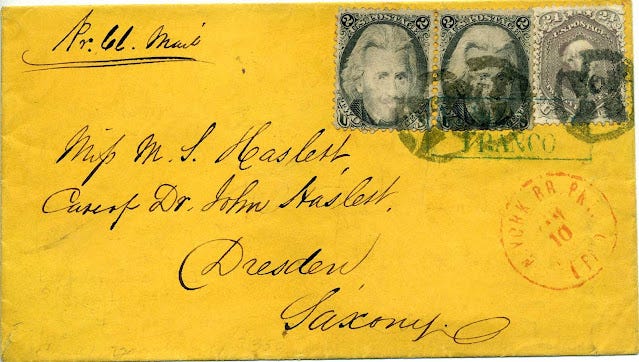 Pr. Cl. Mail
2 POSTAGE 2
2 POSTAGE 2
24 U.S. POSTAGE 24
FRANCO
Miss M. S. Haslett,
Care of Dr. John Haslett.
Dresden
Saxony.
N. YORK BR. PK.
10
PAID